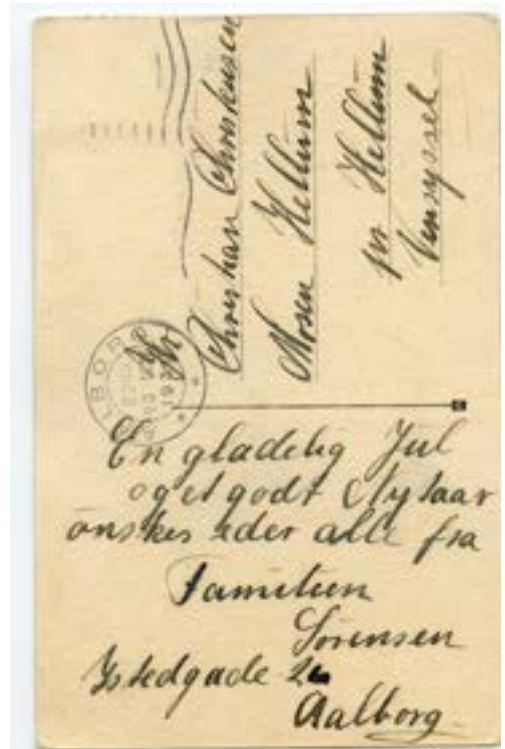 Christian Christensen
Mosen Hellum
pr Hellum
Vensyssel
En gladelig Jul
og et godt Nytaar
önskes eder alle fra
Familien
Sörensen
Istedgade 26
Aalborg.